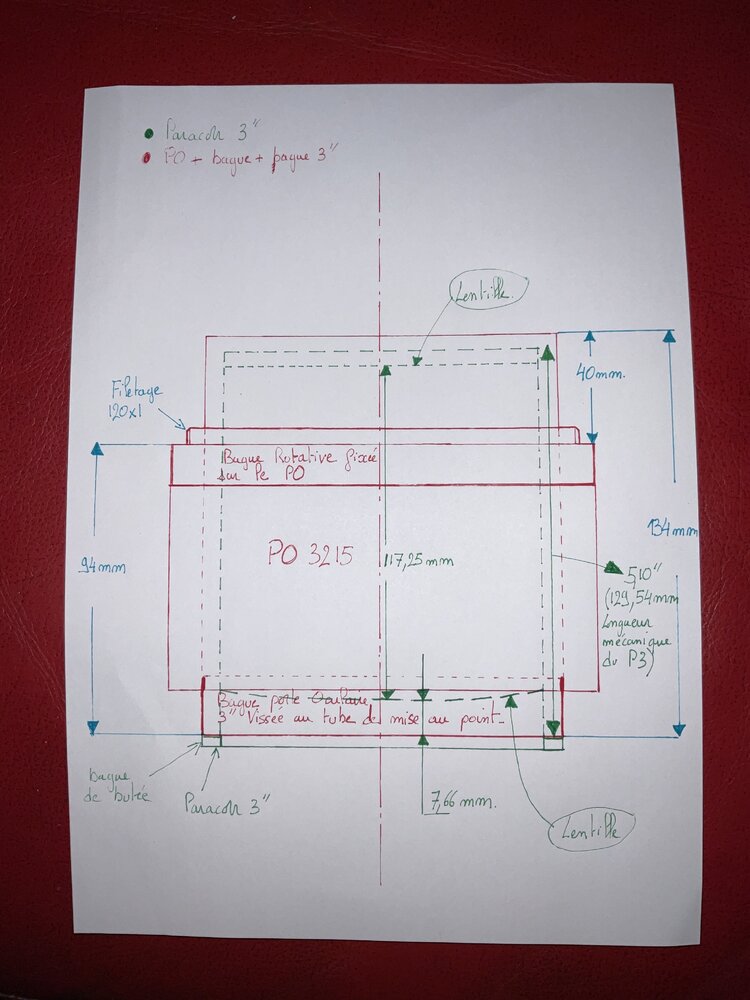 Paracorr 3"
PO + bague + bague 3"
Lentille
40mm.
Filetage
120x1
Bague Rotative fixée
sur le PO
134mm
PO 3215
117,25 mm
94mm
5,10"
(129,54mm
Longueur
mécanique
du P3)
Bague porte Oculaire
3" Vissée au tube de mise au point
bague
de butée
Paracorr 3"
7,66 mm.
Lentille